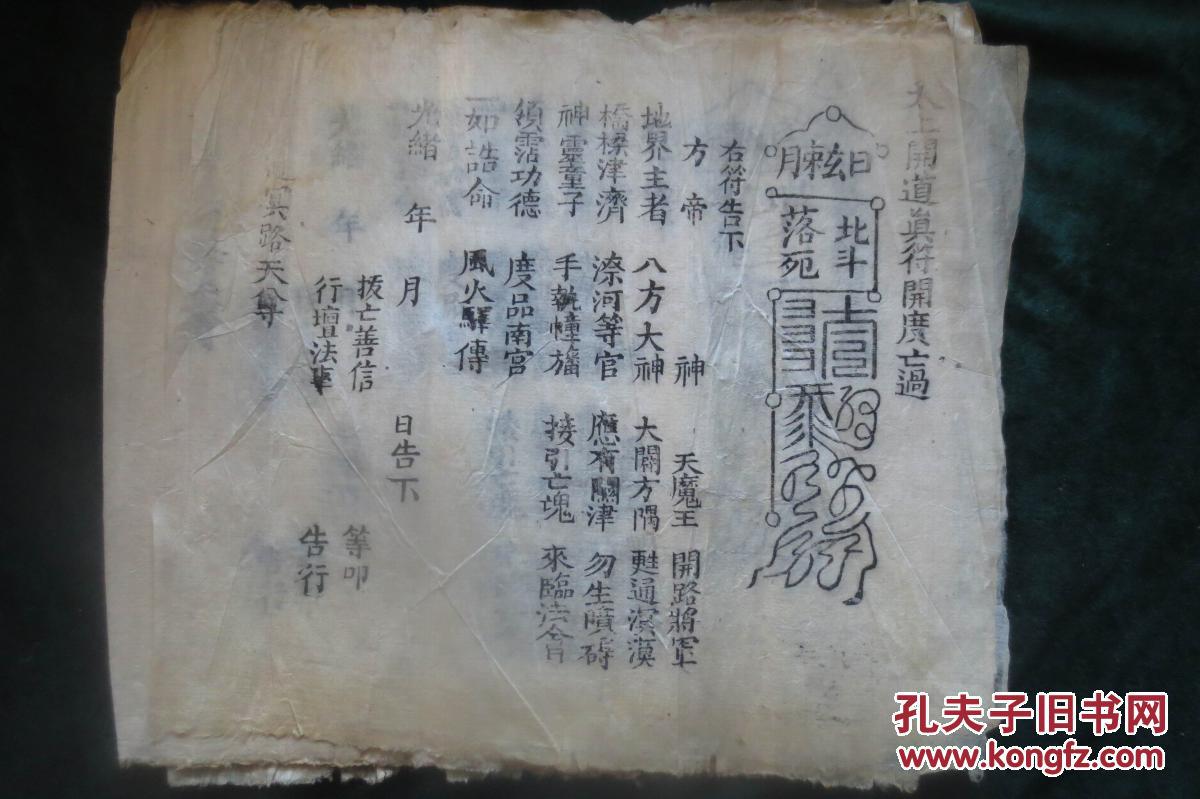 太上開道真符開度亡過
日玄𣍰月
北斗
落死
右符告下
方帝 神 天魔王 開路將軍
地界主者 八方大神 大開方隅 甦通溟漠
橋樑津濟 潦河等官 應有關津 勿生障礙
神靈童子 手執幢旛 接引亡魂 來臨法會
須霑功德 度品南宮
一如誥命 風火驛傳
光緒 年 月 日告下
拔亡善信 等叩
行壇法事 告行
冥路天尊
孔夫子旧书网
www.kongfz.com